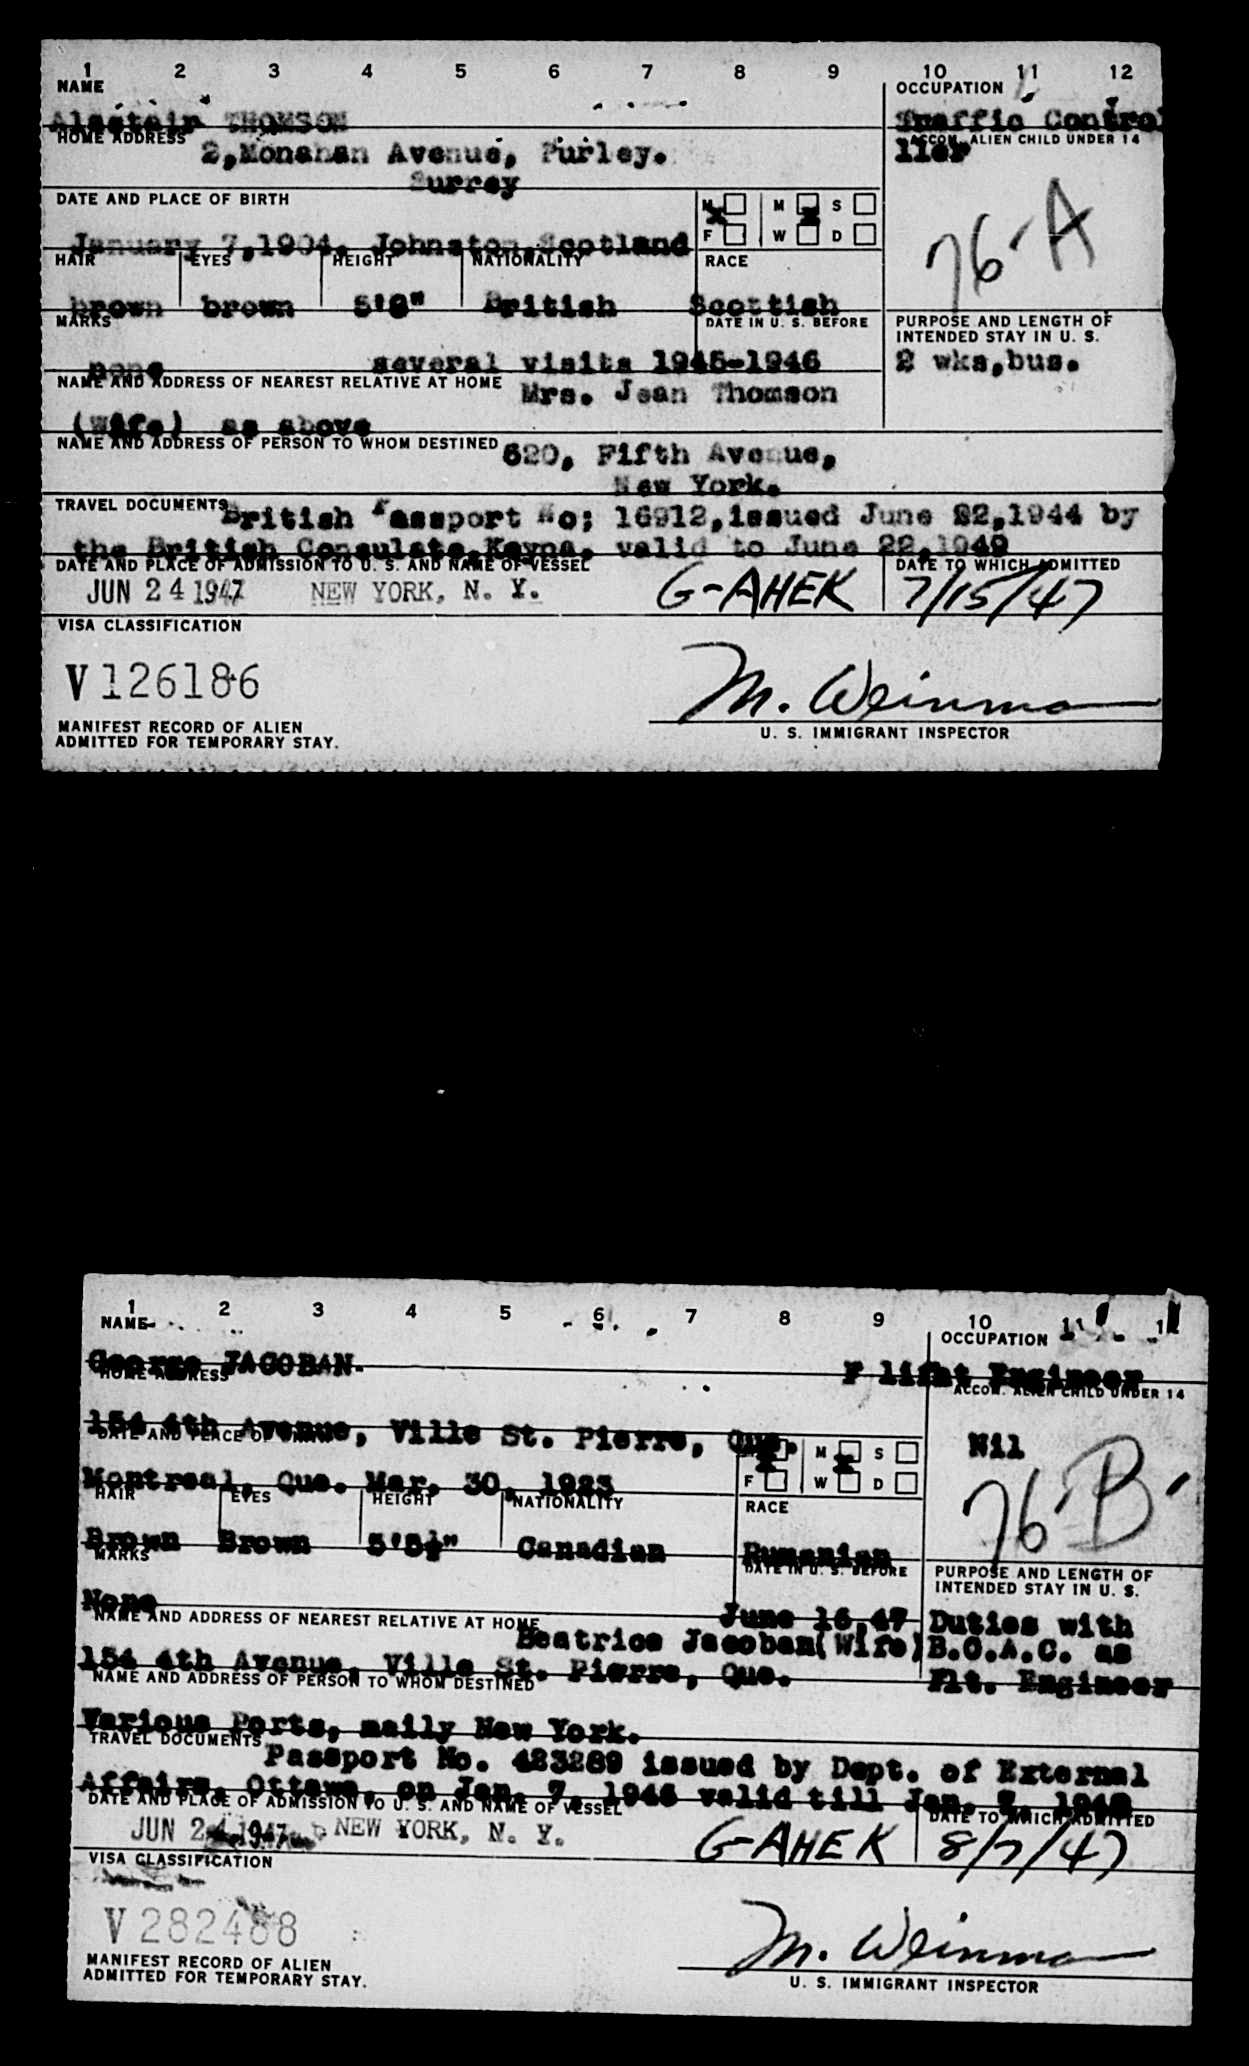 1 2 3 4 5 6 7 8 9 10 11 12
NAME OCCUPATION
Alastair THOMSON Traffic Control
HOME ADDRESS ACCOM. ALIEN CHILD UNDER 14
2,Monahan Avenue, Purley. ller
Surrey
DATE AND PLACE OF BIRTH M M S
F W D
76-A
January 7,1904, Johnston,Scotland
HAIR EYES HEIGHT NATIONALITY RACE
brown brown 5'8" British Scottish
MARKS DATE IN U. S. BEFORE PURPOSE AND LENGTH OF
INTENDED STAY IN U. S.
none several visits 1945-1946 2 wks,bus.
NAME AND ADDRESS OF NEAREST RELATIVE AT HOME Mrs. Jean Thomson
(Wife) as above
NAME AND ADDRESS OF PERSON TO WHOM DESTINED 620, Fifth Avenue,
New York.
TRAVEL DOCUMENTS British Passport No; 16912,issued June 22,1944 by
the British Consulate,Keyna, valid to June 22,1949
DATE AND PLACE OF ADMISSION TO U. S. AND NAME OF VESSEL DATE TO WHICH ADMITTED
JUN 24 1947 NEW YORK, N. Y. G-AHEK 7/15/47
VISA CLASSIFICATION
V 126186
M. Weinman
MANIFEST RECORD OF ALIEN
ADMITTED FOR TEMPORARY STAY.
U. S. IMMIGRANT INSPECTOR
1 2 3 4 5 6 7 8 9 10 11 1
NAME OCCUPATION
George JACOBAN F light Engineer
HOME ADDRESS ACCOM. ALIEN CHILD UNDER 14
154 4th Avenue, Ville St. Pierre, Que. Nil
DATE AND PLACE OF BIRTH M S
F W D
76-B
Montreal, Que. Mar. 30, 1923
HAIR EYES HEIGHT NATIONALITY RACE
Brown Brown 5'8½" Canadian Rumanian
MARKS DATE IN U. S. BEFORE PURPOSE AND LENGTH OF
INTENDED STAY IN U. S.
None June 16,47 Duties with
NAME AND ADDRESS OF NEAREST RELATIVE AT HOME Beatrice Jacoban(Wife) B.O.A.C. as
154 4th Avenue, Ville St. Pierre, Que. Flt. Engineer
NAME AND ADDRESS OF PERSON TO WHOM DESTINED
Various Ports, maily New York.
TRAVEL DOCUMENTS Passport No. 423289 issued by Dept. of External
Affairs, Ottawa, on Jan. 7, 1946 valid till Jan. 7, 1948
DATE AND PLACE OF ADMISSION TO U. S. AND NAME OF VESSEL DATE TO WHICH ADMITTED
JUN 24 1947 NEW YORK, N. Y. G-AHEK 8/7/47
VISA CLASSIFICATION
V 282488
M. Weinman
MANIFEST RECORD OF ALIEN
ADMITTED FOR TEMPORARY STAY.
U. S. IMMIGRANT INSPECTOR